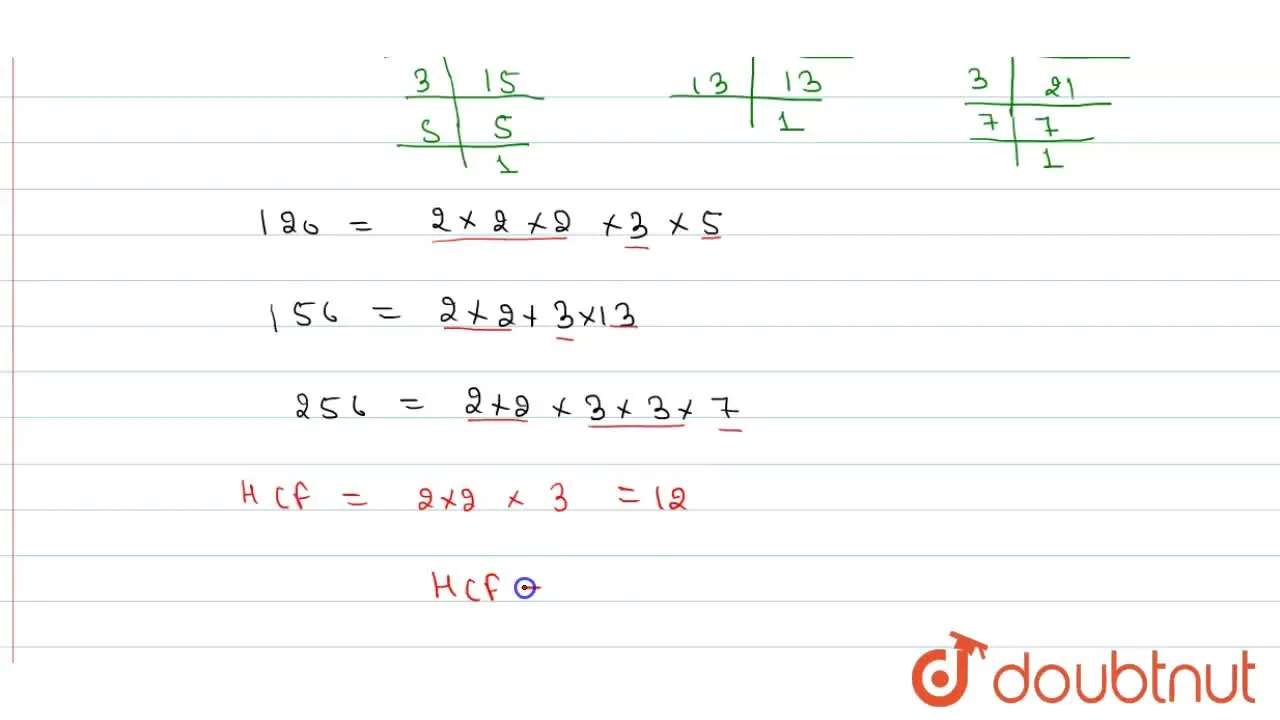 3 15 13 13 3 21
5 5 1 7 7
1 1
120 = 2 × 2 × 2 × 3 × 5
156 = 2 × 2 + 3 × 13
256 = 2 × 2 × 3 × 3 × 7
HCF = 2 × 2 × 3 = 12
HCF =
doubtnut